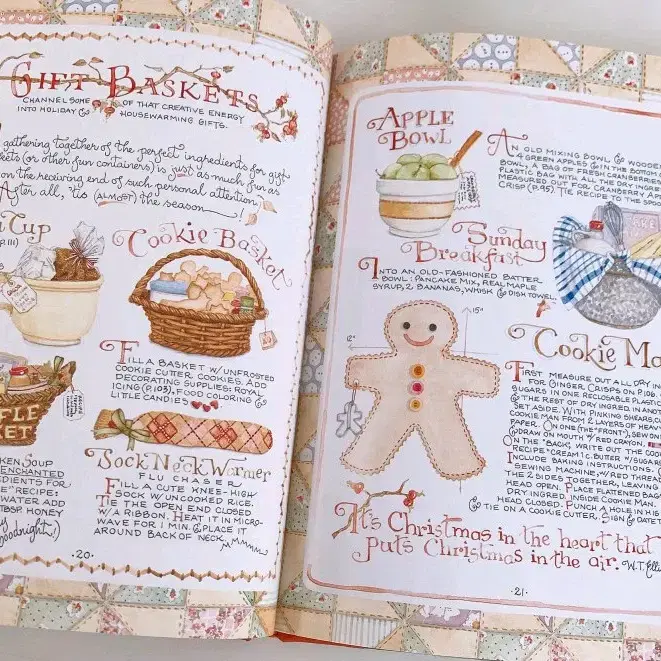 GIFT BASKETS
CHANNEL SOME OF THAT CREATIVE ENERGY
INTO HOLIDAY & HOUSEWARMING GIFTS.
gathering together of the perfect ingredients for gift
(or other fun containers) is just as much fun as
on the receiving end of such personal attention.
After all, 'tis (ALMOST) the season
Cup
P. 111)
Cookie Basket
FILL A BASKET W/ UNFROSTED
COOKIE CUTTER COOKIES. ADD
DECORATING SUPPLIES: ROYAL
ICING (P.105), FOOD COLORING &
LITTLE CANDIES
SOUP
ENCHANTED
RECIPE:
WATER ADD
TBSP. HONEY
goodnight!)
Sock Neck Warmer
FLU CHASER
FILL A CUTE KNEE-HIGH
SOCK W/ UNCOOKED RICE.
TIE THE OPEN END CLOSED
W/ A RIBBON. HEAT IT IN MICRO-
WAVE FOR 1 MIN. & PLACE IT
AROUND BACK OF NECK.
·20·
APPLE
BOWL
AN OLD MIXING BOWL &
4 GREEN APPLES & IN THE BOTTOM
BOWL, A BAG OF FRESH
PLASTIC BAG WITH ALL THE DRY
MEASURED OUT FOR CRANBERRY
CRISP (P.95). TIE RECIPE TO THE
Sunday
Breakfast
INTO AN OLD-FASHIONED BATTER
BOWL: PANCAKE MIX, REAL MAPLE
SYRUP, 2 BANANAS, WHISK & DISH TOWEL.
15"
12"
Cookie
FIRST MEASURE OUT ALL DRY
FOR GINGER CRISPS ON P. 106.
SUGARS IN ONE RECLOSABLE
& THE REST OF DRY INGRED. IN
SET ASIDE. WITH PINKING SHEARS,
COOKIE MAN FROM 2 LAYERS OF
PAPER. ON ONE (THE "FRONT"), SEW ON
& DRAW ON MOUTH W/ RED CRAYON.
ON THE "BACK," WRITE OUT THE
RECIPE "CREAM 1 C. BUTTER W/
INCLUDE BAKING INSTRUCTIONS.
SEWING MACHINE, W/ RED
THE 2 SIDES TOGETHER, LEAVING
HEAD OPEN. PLACE FLATTENED
DRY INGRED. INSIDE COOKIE MAN.
HEAD CLOSED. PUNCH A HOLE IN HIS
& TIE ON A COOKIE CUTTER. SIGN & DATE
It's Christmas in the heart that
puts Christmas in the air. W.T.
·21·